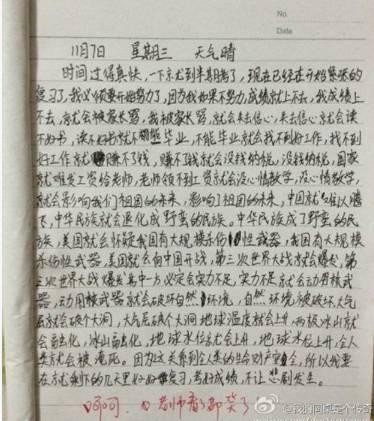 No.
Date
11月7日 星期三 天气晴
时间过得真快，一下京尤到半期考了，现在已经在开始紧张的
复习了，我必须要开始努力了，因为我如果不努力，成绩就上不去，我成绩上
不去，就会被家长骂，我被家长骂，就会失去信心，失去信心就会读
不好书，读不好书就不能毕业，不能毕业就会找不到好工作，找不到
好工作就赚不了钱，赚不了钱就会没钱纳税，没钱纳税，国家
就难发工资给老师，老师领不到工资就会没心情教学，没心情教学，
就会影响我们祖国的未来，影响了祖国的未来，中国就难以腾
飞，中华民族就会退化成野蛮的民族。中华民族成了野蛮的民
族，美国就会怀疑我国有大规模杀伤性武器，我国有大规模
杀伤性武器，美国就会向中国开战，第三次世界大战就会爆发，第
三次世界大战爆发其中一方必定会实力不足，实力不足就会动用核武
器，动用核武器就会破坏自然环境，自然环境被破坏大气
层就会破个大洞，大气层破个大洞地球温度就会上升，两极冰山就
会融化，冰山融化，地球水位就会上升，地球水位上升，全人
类就会被淹死。因为这关系到全人类的生命财产安全，所以我要
在京尤剩下的几天里好好复习，考好成绩，不让悲剧发生。
呵呵，老师看了都笑了
@我们同是个传奇
weibo.com